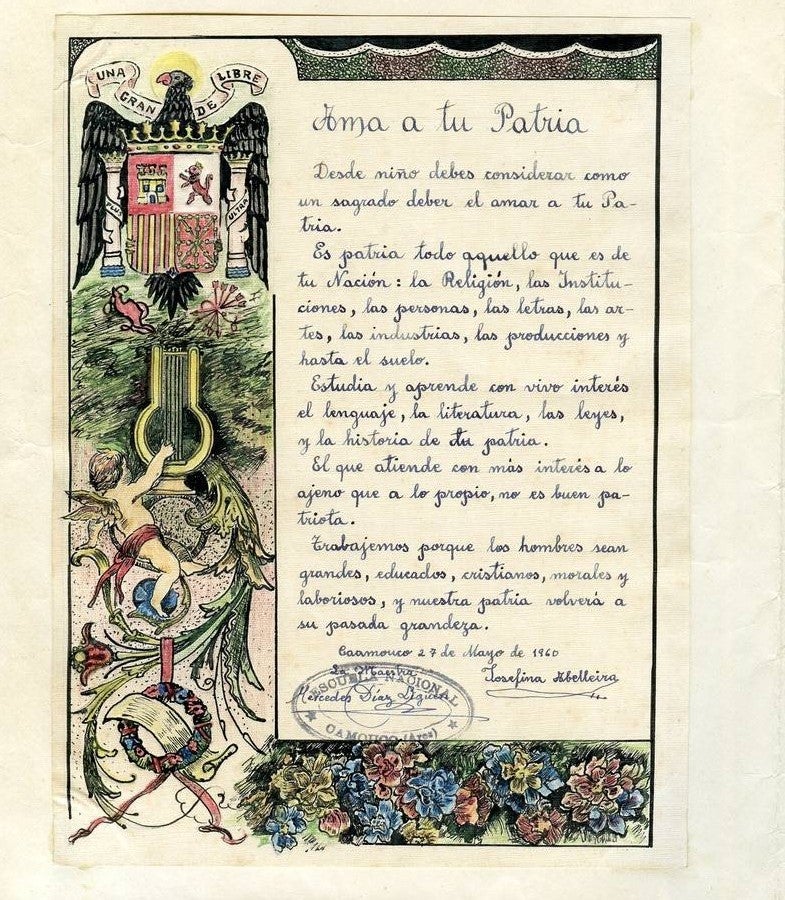 UNA
GRANDE
LIBRE
PLUS
ULTRA
Ama a tu Patria
Desde niño debes considerar como
un sagrado deber el amar a tu Pa-
tria.
Es patria todo aquello que es de
tu Nación: la Religión, las Institu-
ciones, las personas, las letras, las ar-
tes, las industrias, las producciones y
hasta el suelo.
Estudia y aprende con vivo interés
el lenguaje, la literatura, las leyes,
y la historia de tu patria.
El que atiende con más interés a lo
ajeno que a lo propio, no es buen pa-
triota.
Trabajemos porque los hombres sean
grandes, educados, cristianos, morales y
laboriosos, y nuestra patria volverá a
su pasada grandeza.
Caamouco 27 de Mayo de 1960
La Maestra
Josefina Abelleira
Mercedes Díaz
ESCUELA NACIONAL
CAMOUCO (Ares)